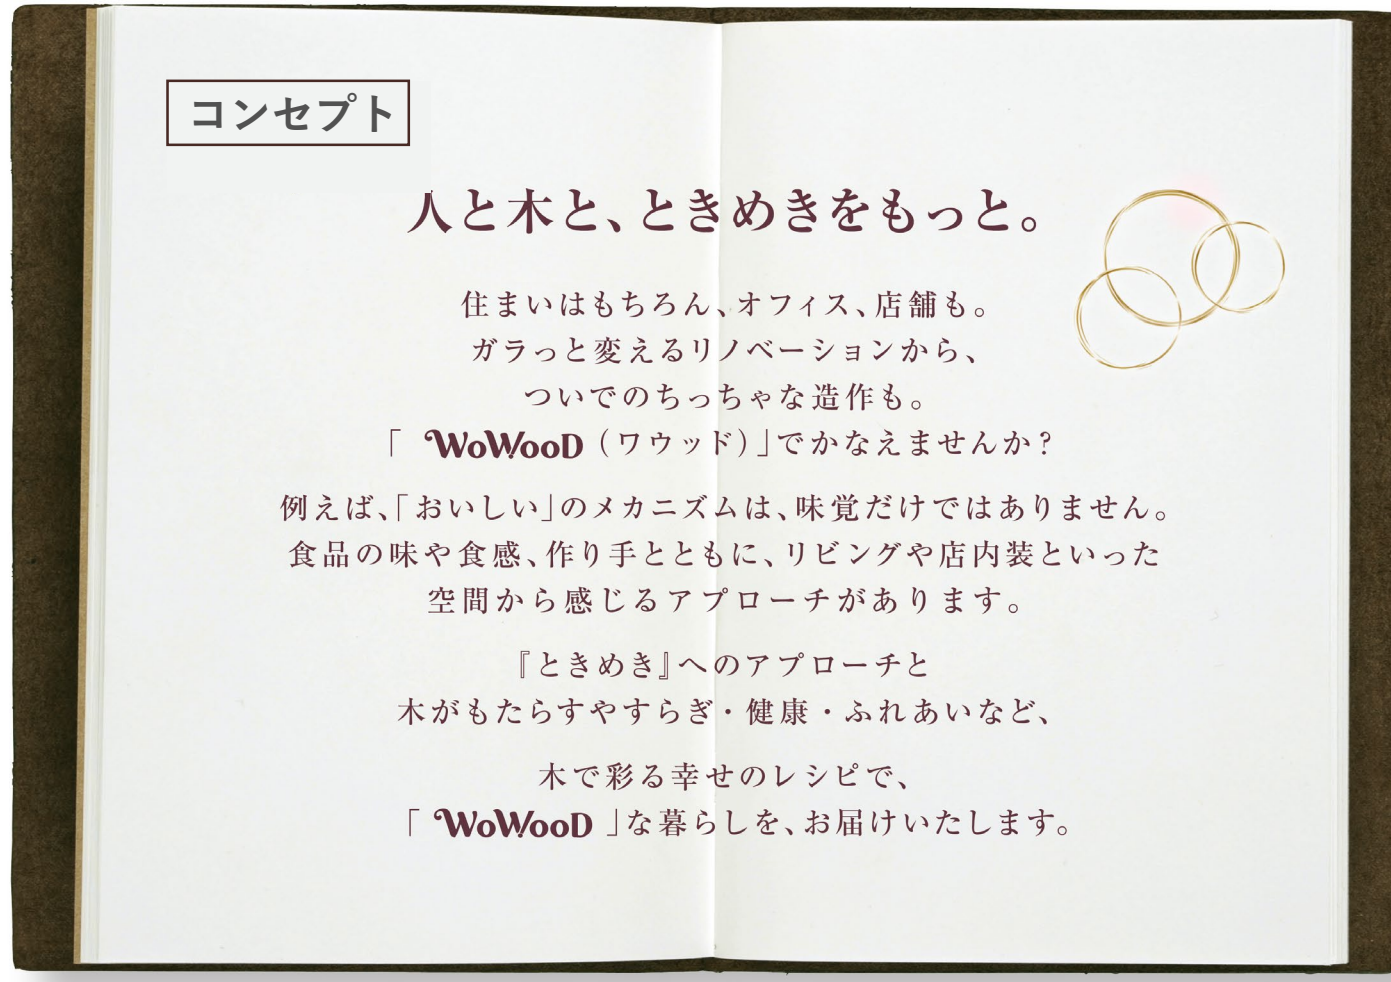 コンセプト
人と木と、ときめきをもっと。
住まいはもちろん、オフィス、店舗も。
ガラっと変えるリノベーションから、
ついでのちっちゃな造作も。
「 WoWooD （ワウッド）」でかなえませんか？
例えば、「おいしい」のメカニズムは、味覚だけではありません。
食品の味や食感、作り手とともに、リビングや店内装といった
空間から感じるアプローチがあります。
『ときめき』へのアプローチと
木がもたらすやすらぎ・健康・ふれあいなど、
木で彩る幸せのレシピで、
「 WoWooD 」な暮らしを、お届けいたします。